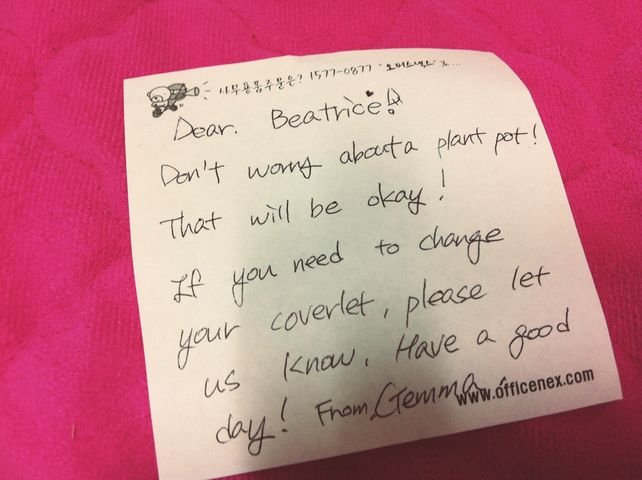 사무용품주문은? 1577-0877 "오피스넥스"로....
Dear. Beatrice!
Don't worry about a plant pot!
That will be okay!
If you need to change
your coverlet, please let
us know. Have a good
day! From. Gemma
www.officenex.com